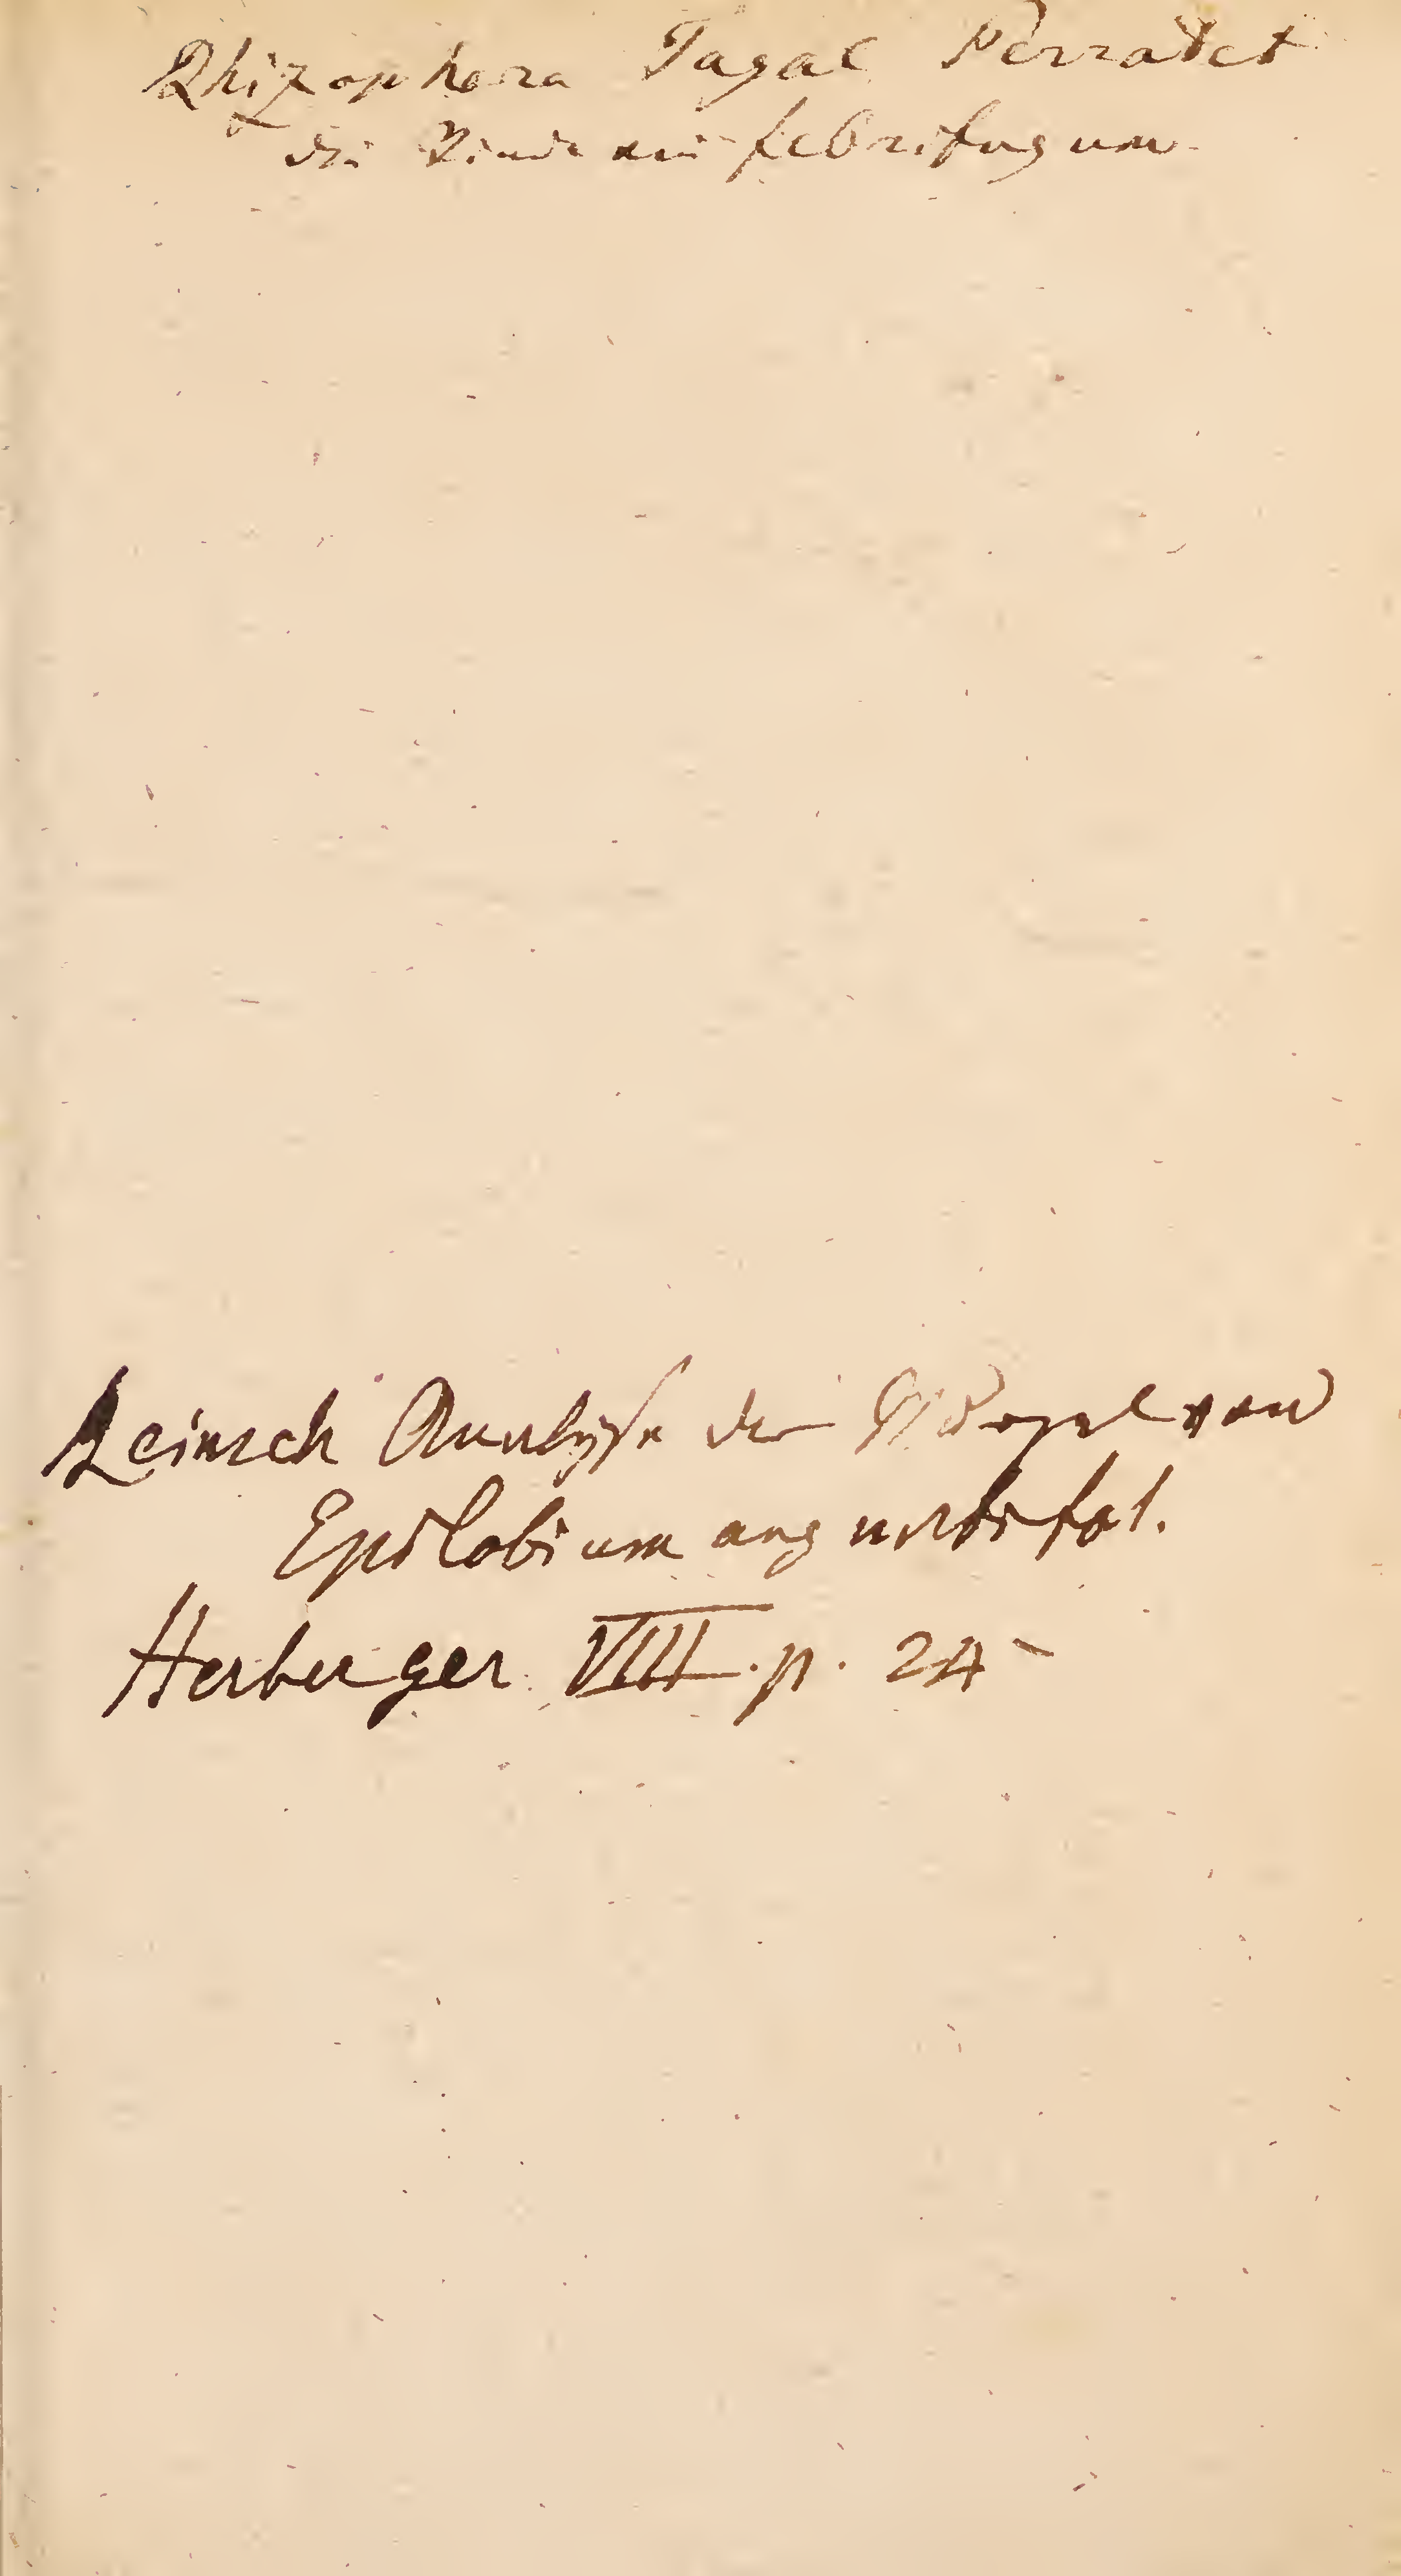 Rhizophora Tagal Perratet
die Rinde ein febrifugum
Reinsch Analyse der Wurzel von
Epilobium angustifol.
Herberger VIII. p. 24